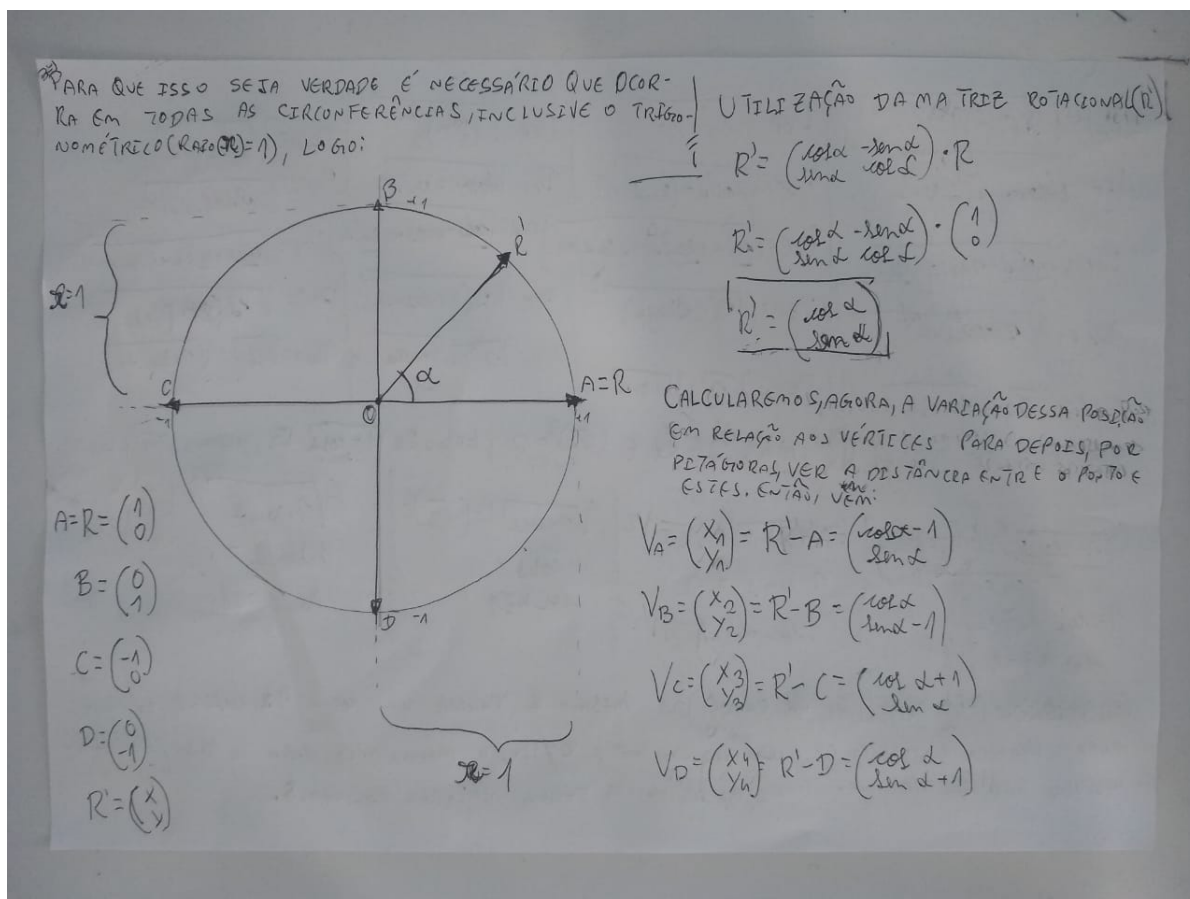 PARA QUE ISSO SEJA VERDADE É NECESSÁRIO QUE OCOR-
RA EM TODAS AS CIRCONFERÊNCIAS, INCLUSIVE O TRIGO-
NOMÉTRICO (RAIO(R)=1), LOGO:
B +1
R'
r=1
α
C
-1
O
A=R
+1
D -1
r=1
A=R=(1 0)
B=(0 1)
C=(-1 0)
D=(0 -1)
R'=(x y)
UTILIZAÇÃO DA MATRIZ ROTACIONAL(R')
R'=(cosα -senα senα cosα)·R
R'=(cosα -senα senα cosα)·(1 0)
R'=(cosα senα)
CALCULAREMOS, AGORA, A VARIAÇÃO DESSA POSIÇÃO
EM RELAÇÃO AOS VÉRTICES PARA DEPOIS, POR
PITÁGORAS, VER A DISTÂNCIA ENTRE O PONTO E
ESTES. ENTÃO, VEM:
VA=(X1 Y1)=R'-A=(cosα-1 senα)
VB=(X2 Y2)=R'-B=(cosα senα-1)
VC=(X3 Y3)=R'-C=(cosα+1 senα)
VD=(X4 Y4)=R'-D=(cosα senα+1)